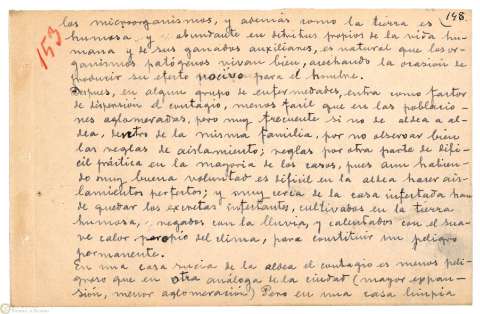 los microorganismos, y además como la tierra es
148.
153
humosa y abundante en detritus propios de la vida hu-
mana y de sus ganados auxiliares, es natural que los or-
ganismos patógenos vivan bien, acechando la ocasión de
producir su efecto nocivo para el hombre.
Despues, en algun grupo de enfermedades, entra como factor
de dispersión el contagio, menos facil que en las poblacio-
nes aglomeradas, pero muy frecuente si no de aldea a al-
dea, dentro de la misma familia, por no observar bien
las reglas de aislamiento; reglas por otra parte de difi-
cil práctica en la mayoria de los casos, pues aun habien-
do muy buena voluntad es dificil en la aldea hacer ais-
lamientos perfectos; y muy cerca de la casa infectada han
de quedar los excretas infectantes, cultivados en la tierra
humosa, regados con la lluvia, y calentados con el sua-
ve calor propio del clima, para constituir un peligro
permanente.
En una casa sucia de la aldea el contagio es menos peli-
groso que en otra análoga de la ciudad (mayor expan-
sión, menor aglomeracion) Pero en una casa limpia